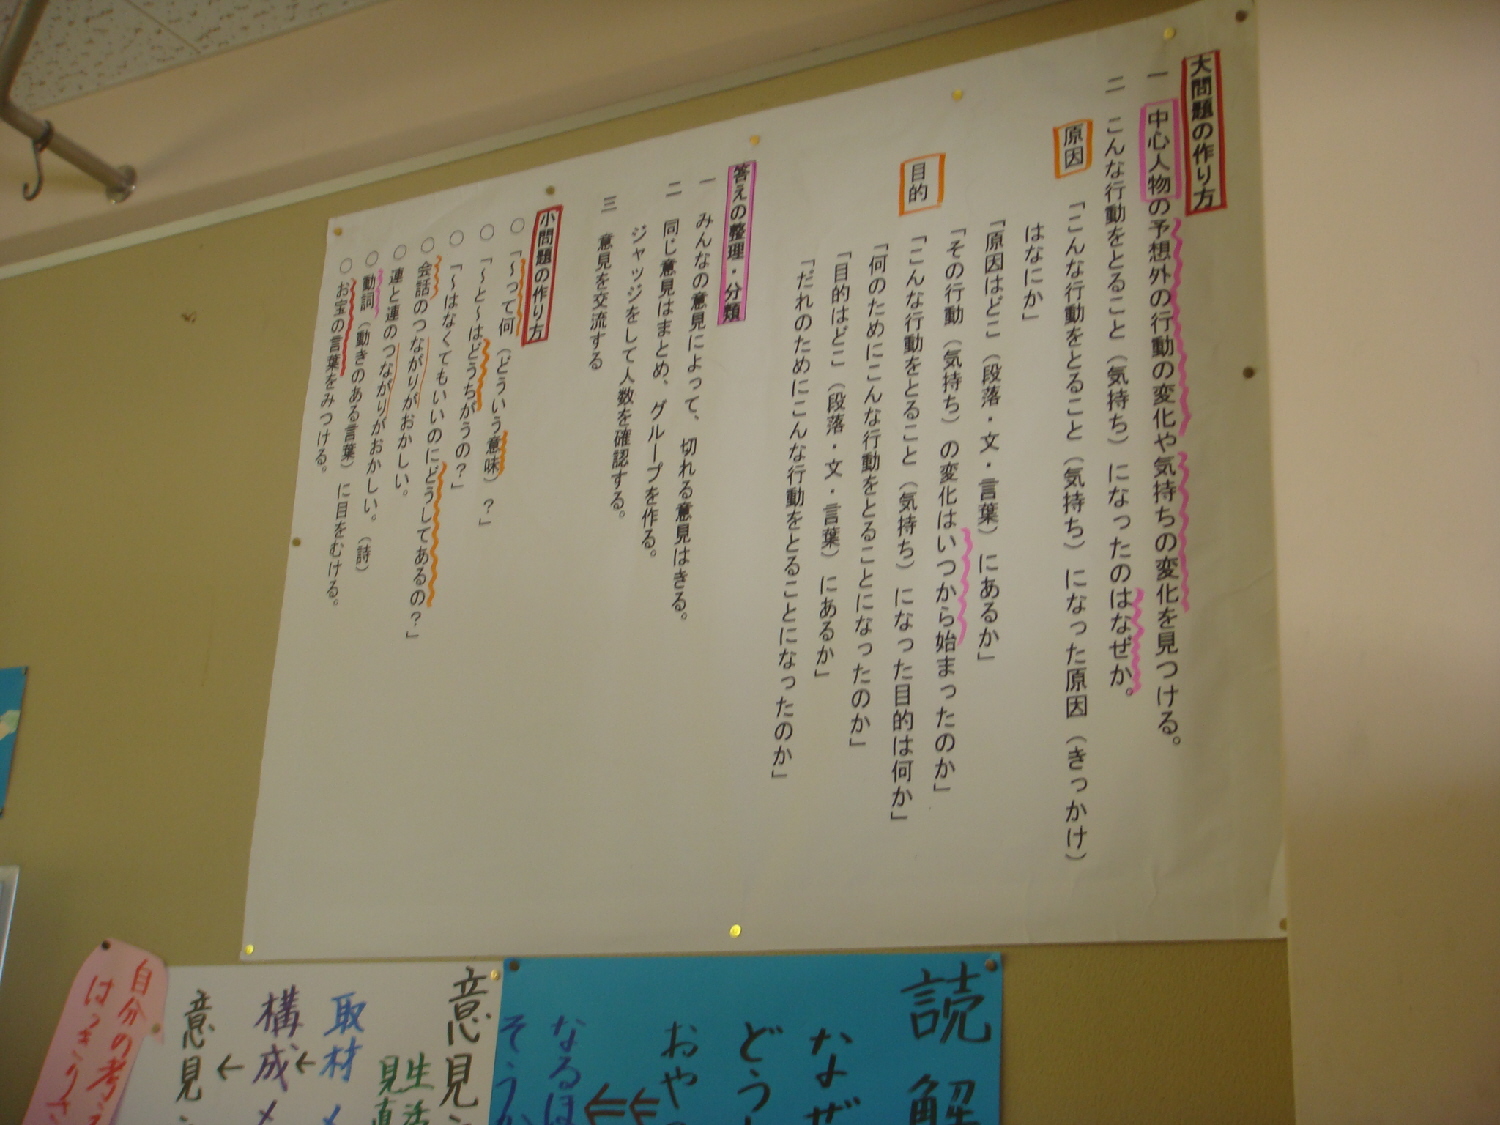 大問題の作り方
一　中心人物の予想外の行動の変化や気持ちの変化を見つける。
二　こんな行動をとること（気持ち）になったのはなぜか。
原因
「こんな行動をとること（気持ち）になった原因（きっかけ）
はなにか」
「原因はどこ（段落・文・言葉）にあるか」
「その行動（気持ち）の変化はいつから始まったのか」
目的
「こんな行動をとること（気持ち）になった目的は何か」
「何のためにこんな行動をとることになったのか」
「目的はどこ（段落・文・言葉）にあるか」
「だれのためにこんな行動をとることになったのか」
答えの整理・分類
一　みんなの意見によって、切れる意見はきる。
二　同じ意見はまとめ、グループを作る。
ジャッジをして人数を確認する。
三　意見を交流する
小問題の作り方
○　「～って何（どういう意味）？」
○　「～と～はどうちがうの？」
○　「～はなくてもいいのにどうしてあるの？」
○　会話のつながりがおかしい。
○　連と連のつながりがおかしい。（詩）
○　動詞（動きのある言葉）に目をむける。
○　お宝の言葉をみつける。
読解
なぜ
どう
おや
←←
なるほ
そうか
意見
生活
見直
取材
←
構成メ
←
意見
自分の考え
はっきり